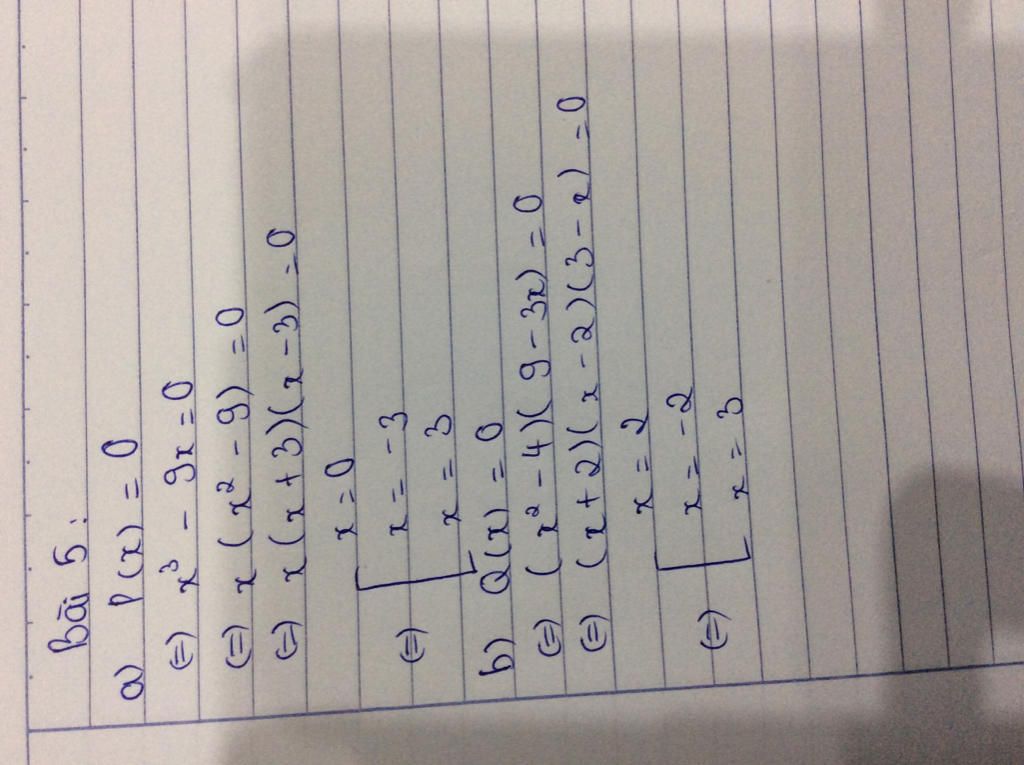 Bài 5:
a) P(x) = 0
(=) x³ - 9x = 0
(=) x(x² - 9) = 0
(=) x(x + 3)(x - 3) = 0
x = 0
(=) [ x = -3
x = 3
b) Q(x) = 0
(=) (x² - 4)(9 - 3x) = 0
(=) (x + 2)(x - 2)(3 - x) = 0
x = 2
(=) [ x = -2
x = 3